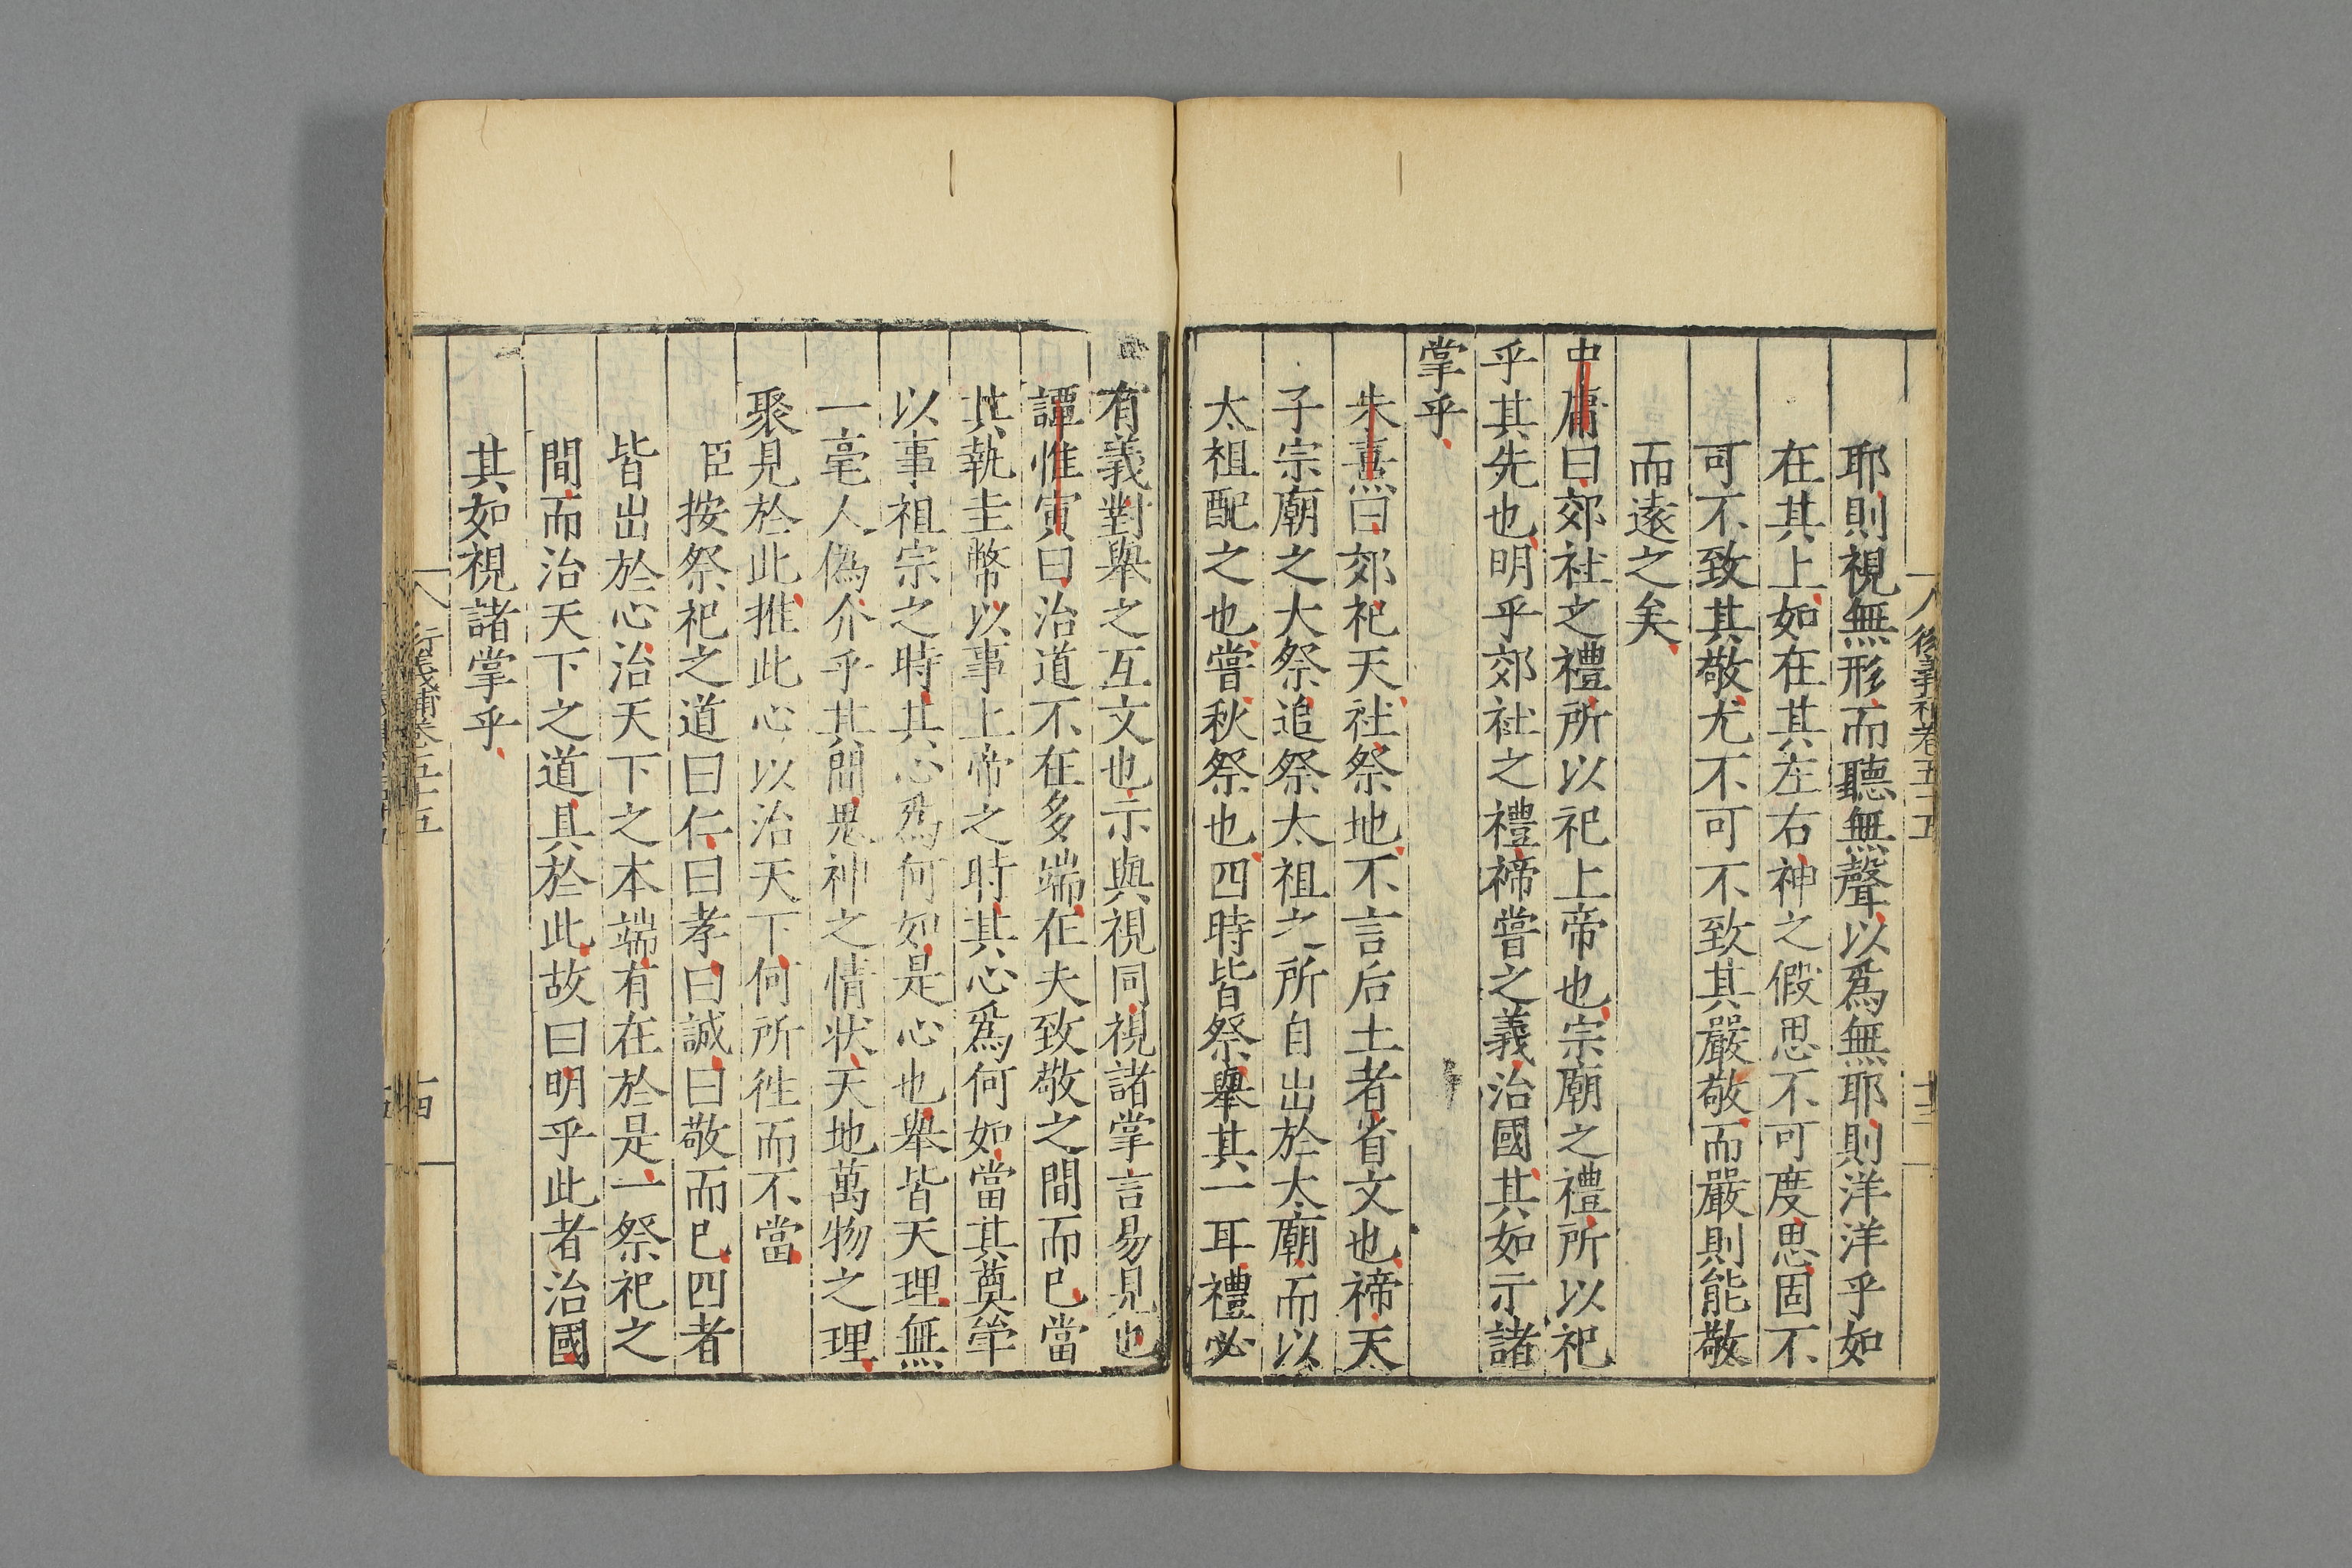 耶則視無形而聽無聲以爲無耶則洋洋乎如
在其上如在其左右神之假思不可度思固不
可不致其敬尤不可不致其嚴敬而嚴則能敬
而遠之矣
中庸曰郊社之禮所以祀上帝也宗廟之禮所以祀
乎其先也明乎郊社之禮禘嘗之義治國其如示諸
掌乎
朱熹曰郊祀天社祭地不言后土者省文也禘天
子宗廟之大祭追祭太祖之所自出於太廟而以
太祖配之也嘗秋祭也四時皆祭舉其一耳禮必
有義對舉之互文也示與視同視諸掌言易見也
譚惟寅曰治道不在多端在夫致敬之間而已當
其執圭幣以事上帝之時其心爲何如當其奠斝
以事祖宗之時其心爲何如是心也舉皆天理無
一毫人僞介乎其間鬼神之情状天地萬物之理
聚見於此推此心以治天下何所徃而不當
臣按祭祀之道曰仁曰孝曰誠曰敬而已四者
皆出於心治天下之本端有在於是一祭祀之
間而治天下之道具於此故曰明乎此者治國
其如視諸掌乎
衍義補卷五十五
十四